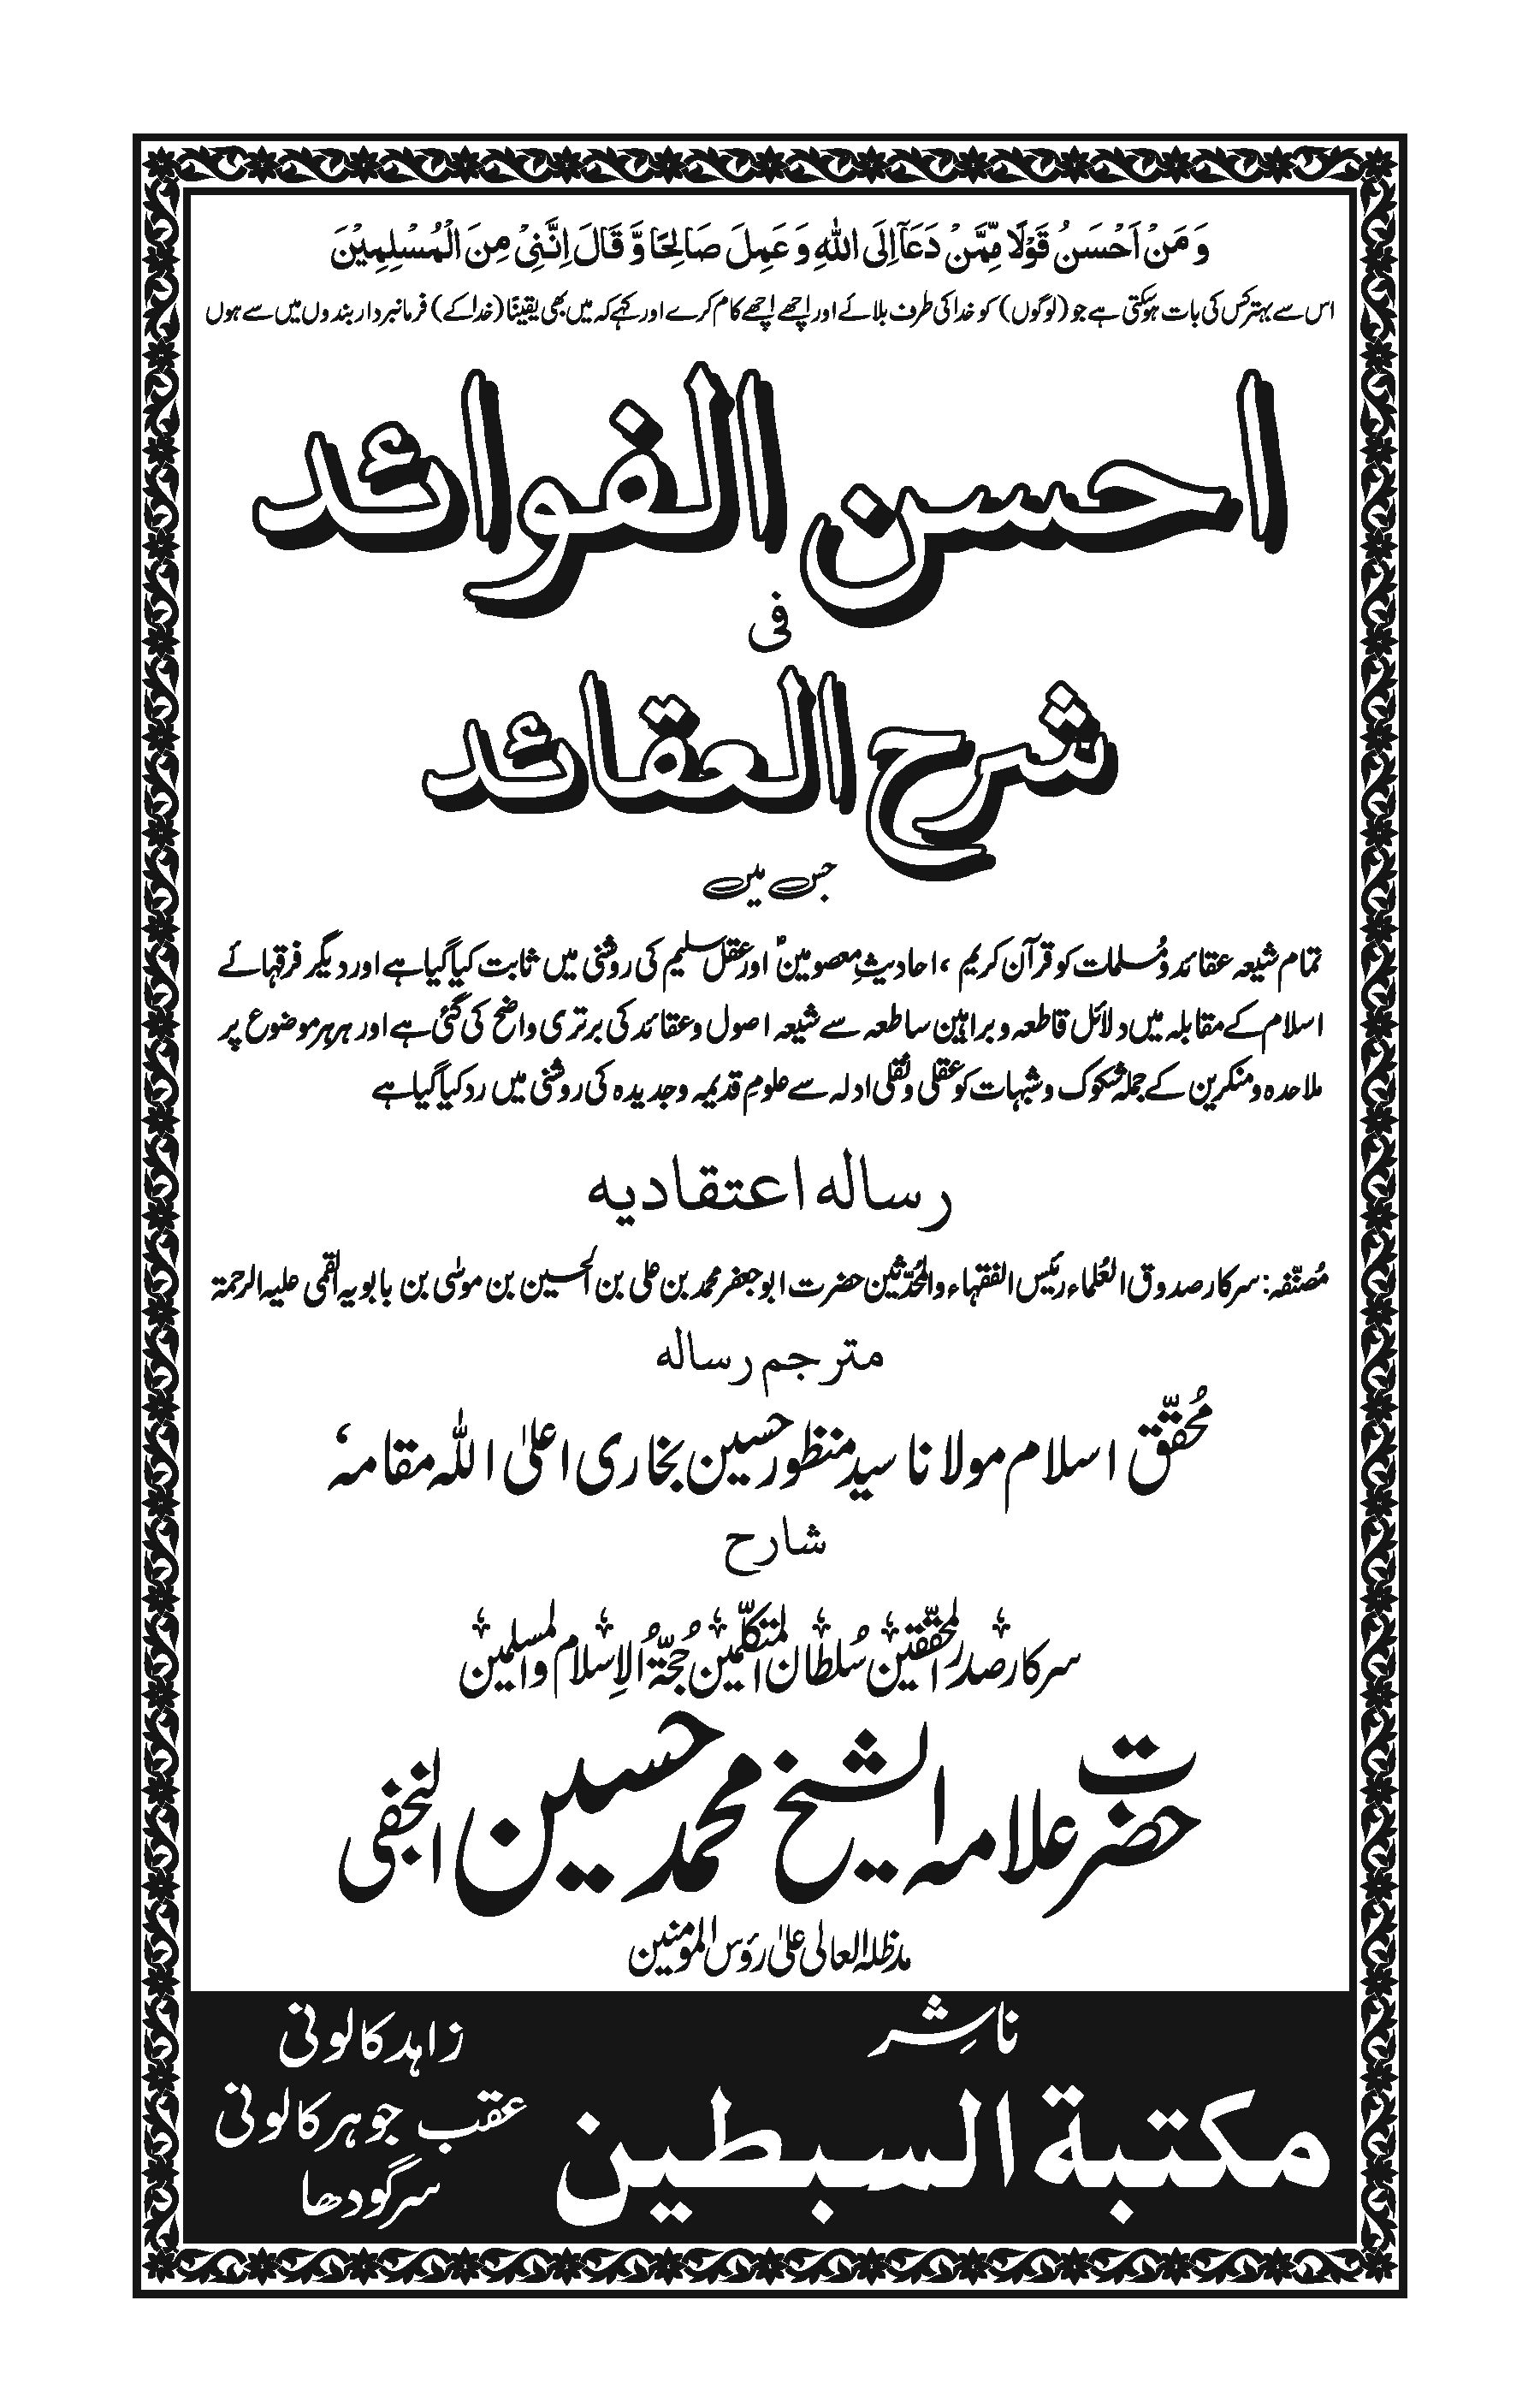 وَ مَنْ اَحْسَنُ قَوْلًا مِّمَّنْ دَعَآ اِلَى اللهِ وَ عَمِلَ صَالِحًا وَّ قَالَ اِنَّنِیْ مِنَ الْمُسْلِمِیْنَ
اس سے بہتر کس کی بات ہو سکتی ہے جو (لوگوں) کو خدا کی طرف بلائے اور اچھے اچھے کام کرے اور کہے کہ میں بھی یقینًا (خدا کے) فرمانبردار بندوں میں سے ہوں
احسن الفوائد
فی
شرح العقائد
جس میں
تمام شیعہ عقائد و مسلمات کو قرآن کریم، احادیثِ معصومینؑ اور عقل سلیم کی روشنی میں ثابت کیا گیا ہے اور دیگر فرقہائے
اسلام کے مقابلہ میں دلائل قاطعہ و براہین ساطعہ سے شیعہ اصول و عقائد کی برتری واضح کی گئی ہے اور ہر ہر موضوع پر
ملاحدہ و منکرین کے جملہ شکوک و شبہات کو عقلی و نقلی ادلہ سے علومِ قدیمہ و جدیدہ کی روشنی میں رد کیا گیا ہے
رسالہ اعتقادیہ
مُصنّفہ: سرکار صدوق العُلماء رئیس الفقہاء والمُحدّثین حضرت ابوجعفر محمد بن علی بن الحسین بن موسٰی بن بابویہ القمی علیہ الرحمۃ
مترجم رسالہ
مُحقّق اسلام مولانا سید منظور حسین بخاری اعلیٰ اللہ مقامہٗ
شارح
سرکار صدر المحققین سُلطان المتکلّمین حُجّۃُ الاِسلام والمسلمین
حضرت علامہ الشیخ محمد حسین النجفی
مدظلہ العالی علیٰ رؤس المومنین
ناشِر
مکتبة السبطین
زاہد کالونی
عقب جوہر کالونی
سرگودھا